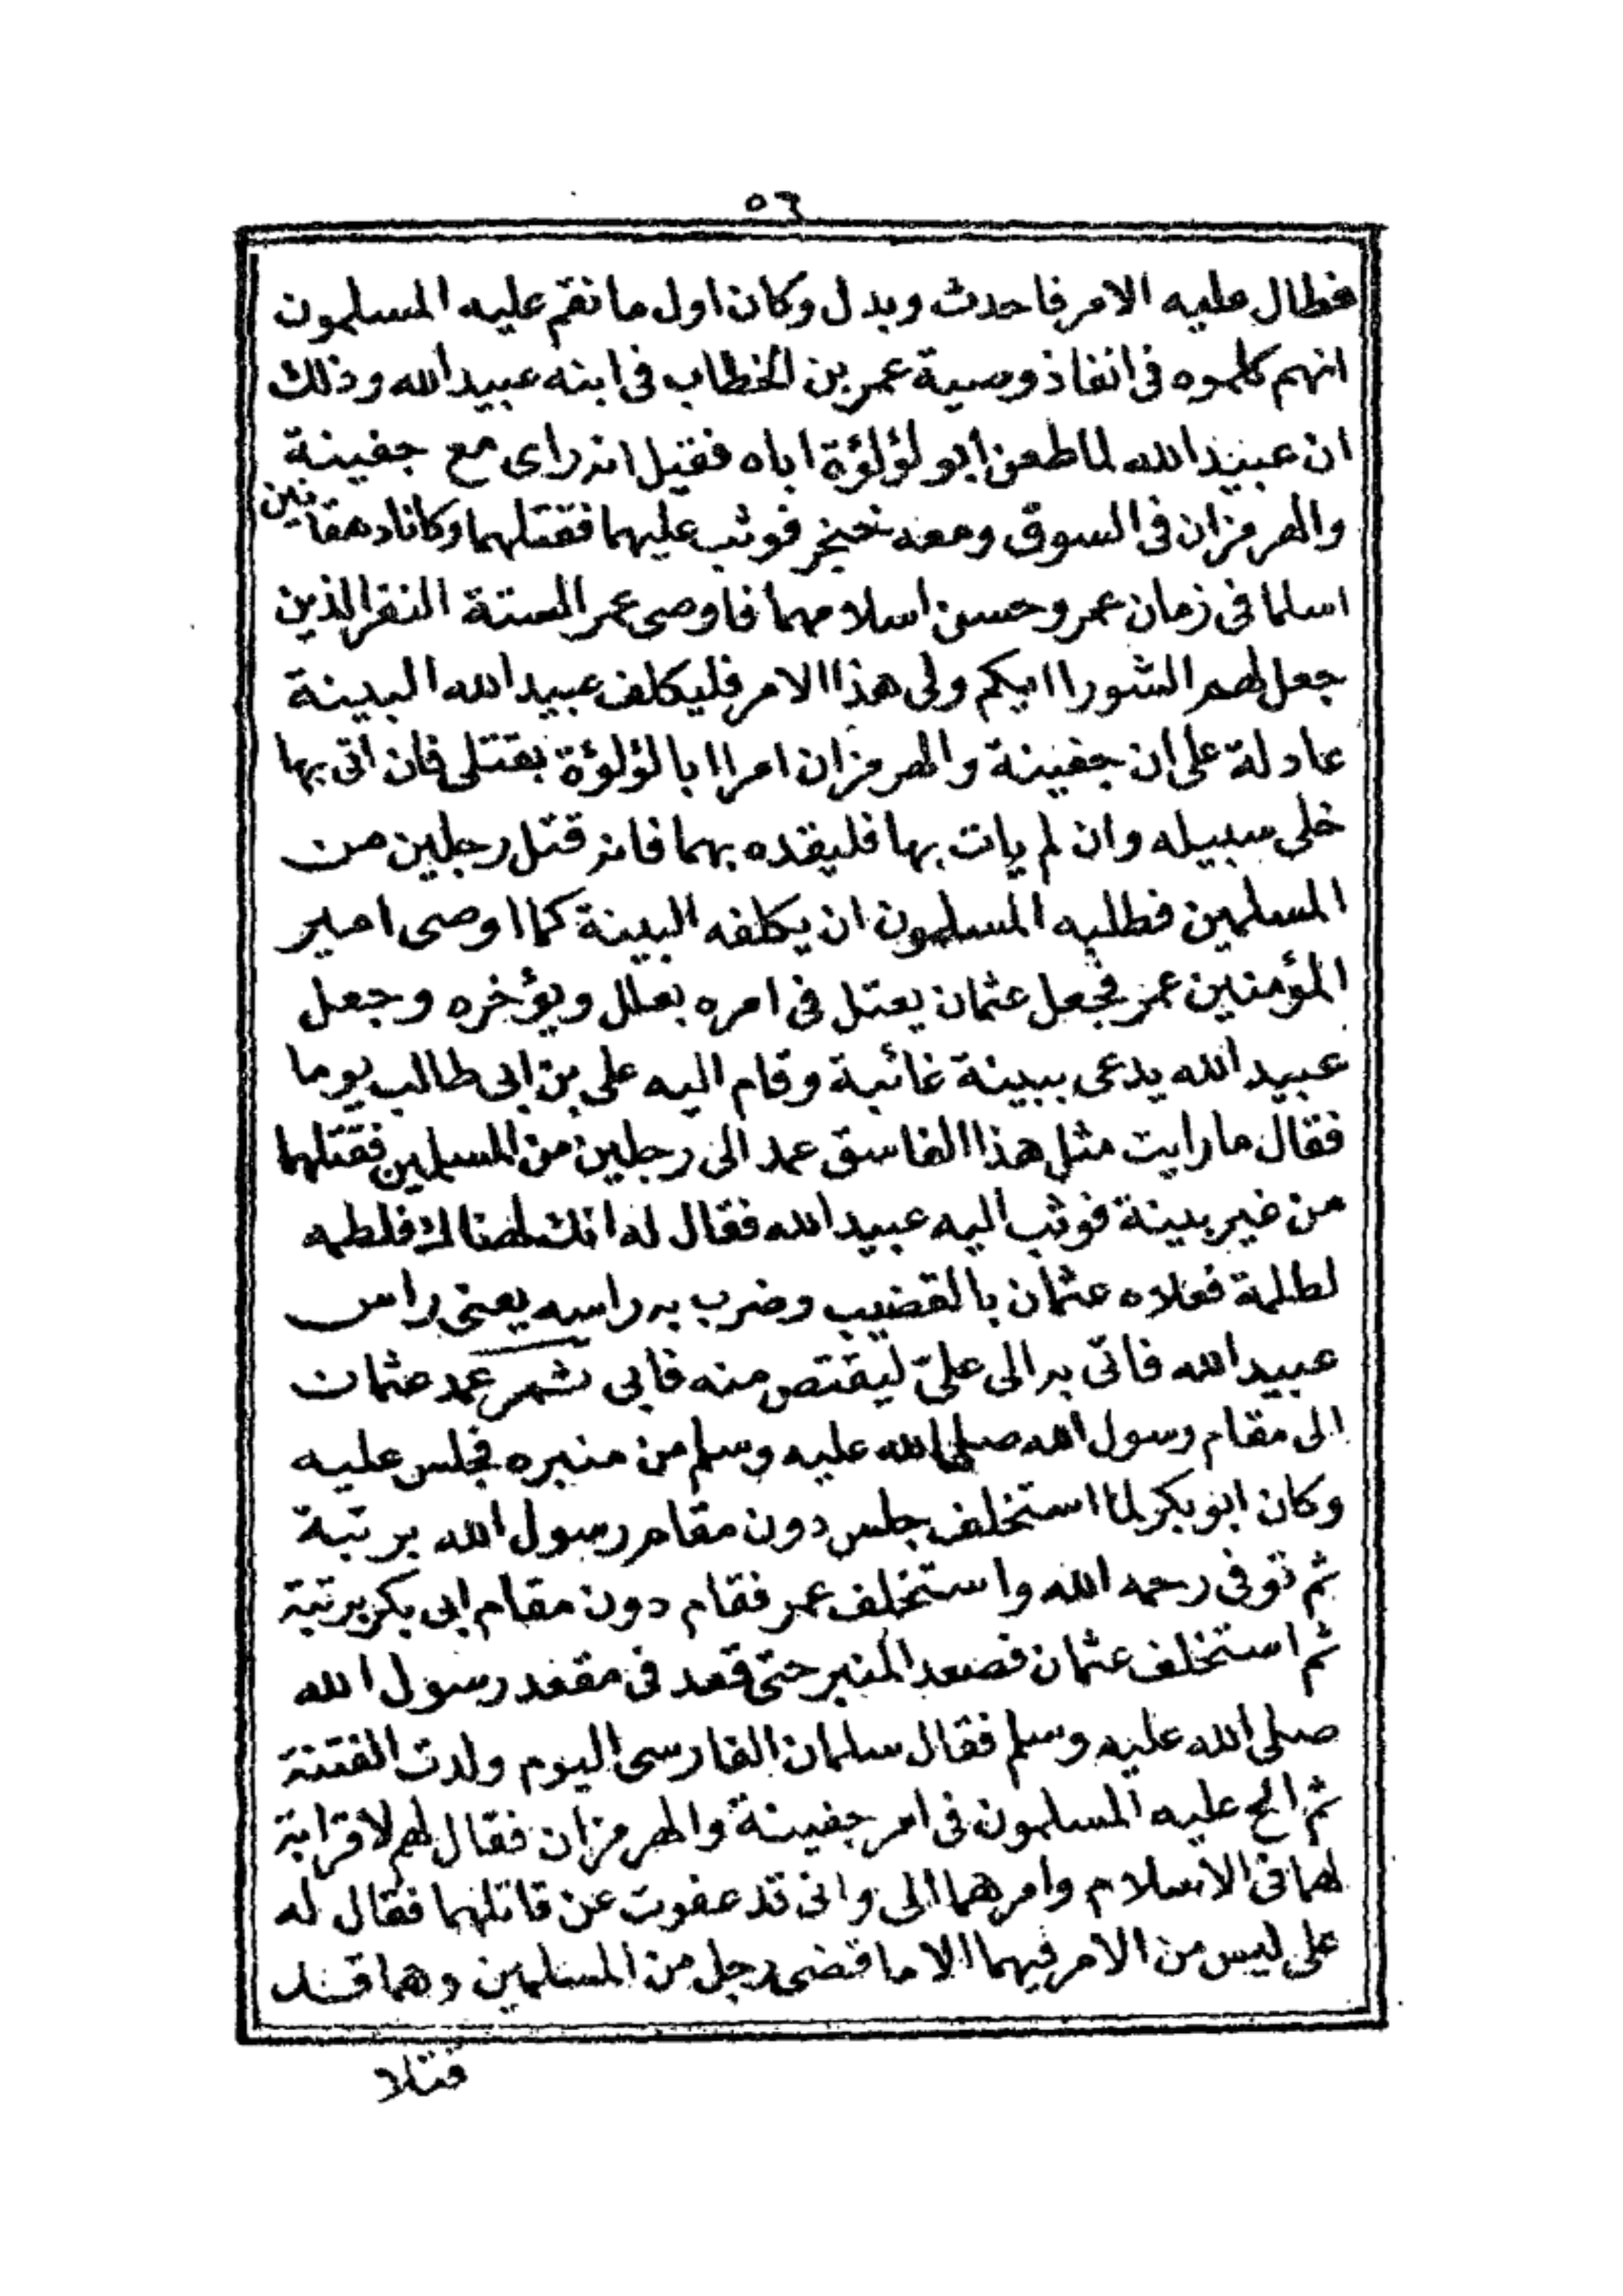 ٥٦
فطال عليه الامر فاحدث وبدل وكان اول ما نقم عليه المسلمون
انهم كلموه فى انفاذ وصية عمر بن الخطاب فى ابنه عبيد الله وذلك
ان عبيد الله لما طعن ابو لؤلؤة اباه فقيل انه راى مع جفينة
والهرمزان فى السوق ومعه خنجر فوثب عليهما فقتلهما وكانا دهقانين
اسلما فى زمان عمر وحسن اسلامهما فاوصى عمر الستة النفر الذين
جعل لهم الشورا ايكم ولى هذا الامر فليكلف عبيد الله البينة
عادلة على ان جفينة والهرمزان امرا ابا لؤلؤة بقتلى فان اتى بها
خلى سبيله وان لم يات بها فليقده بهما فانه قتل رجلين من
المسلمين فطلبه المسلمون ان يكلفه البينة كما اوصى امير
المؤمنين عمر فجعل عثمان يعتل فى امره بعلل ويؤخره وجعل
عبيد الله يدعى ببينة غائبة وقام اليه على بن ابى طالب يوما
فقال ما رايت مثل هذا الفاسق عمد الى رجلين من المسلمين فقتلهما
من غير بينة فوثب اليه عبيد الله فقال له انك لهنالك فلطمه
لطمة فعلاه عثمان بالقضيب وضرب به راسه يعنى راس
عبيد الله فاتى به الى علىّ ليقتص منه فابى ثم عمد عثمان
الى مقام رسول الله صلى الله عليه وسلم من منبره فجلس عليه
وكان ابو بكر لما استخلف جلس دون مقام رسول الله برتبة
ثم توفى رحمه الله واستخلف عمر فقام دون مقام ابى بكر برتبة
ثم استخلف عثمان فصعد المنبر حتى قعد فى مقعد رسول الله
صلى الله عليه وسلم فقال سلمان الفارسى اليوم ولدت الفتنة
ثم الح عليه المسلمون فى امر جفينة والهرمزان فقال لهم لا قرابة
لهما فى الاسلام وامرهما الى وانى قد عفوت عن قاتلهما فقال له
على ليس من الامر فيهما الا ما قضى رجل من المسلمين وهما قد
قتلا